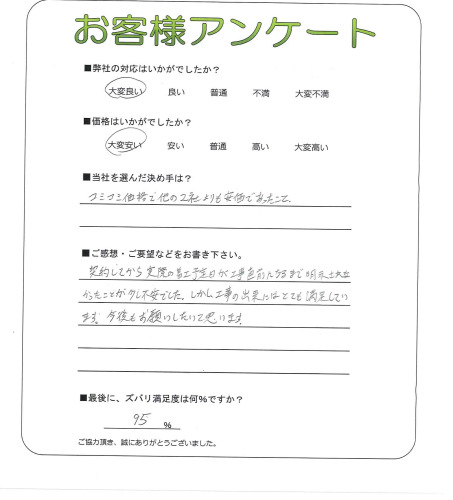 お客様アンケート
■弊社の対応はいかがでしたか?
大変良い 良い 普通 不満 大変不満
■価格はいかがでしたか?
大変安い 安い 普通 高い 大変高い
■当社を選んだ決め手は?
コミコミ価格で他の2社よりも安価であったこと。
■ご感想・ご要望などをお書き下さい。
契約してから実際の着工予定日が工事直前になるまで明示されな
かったことが少し不安でした。しかし工事の出来にはとても満足してい
ます。今後もお願いしたいと思います。
■最後に、ズバリ満足度は何%ですか?
95 %
ご協力頂き、誠にありがとうございました。